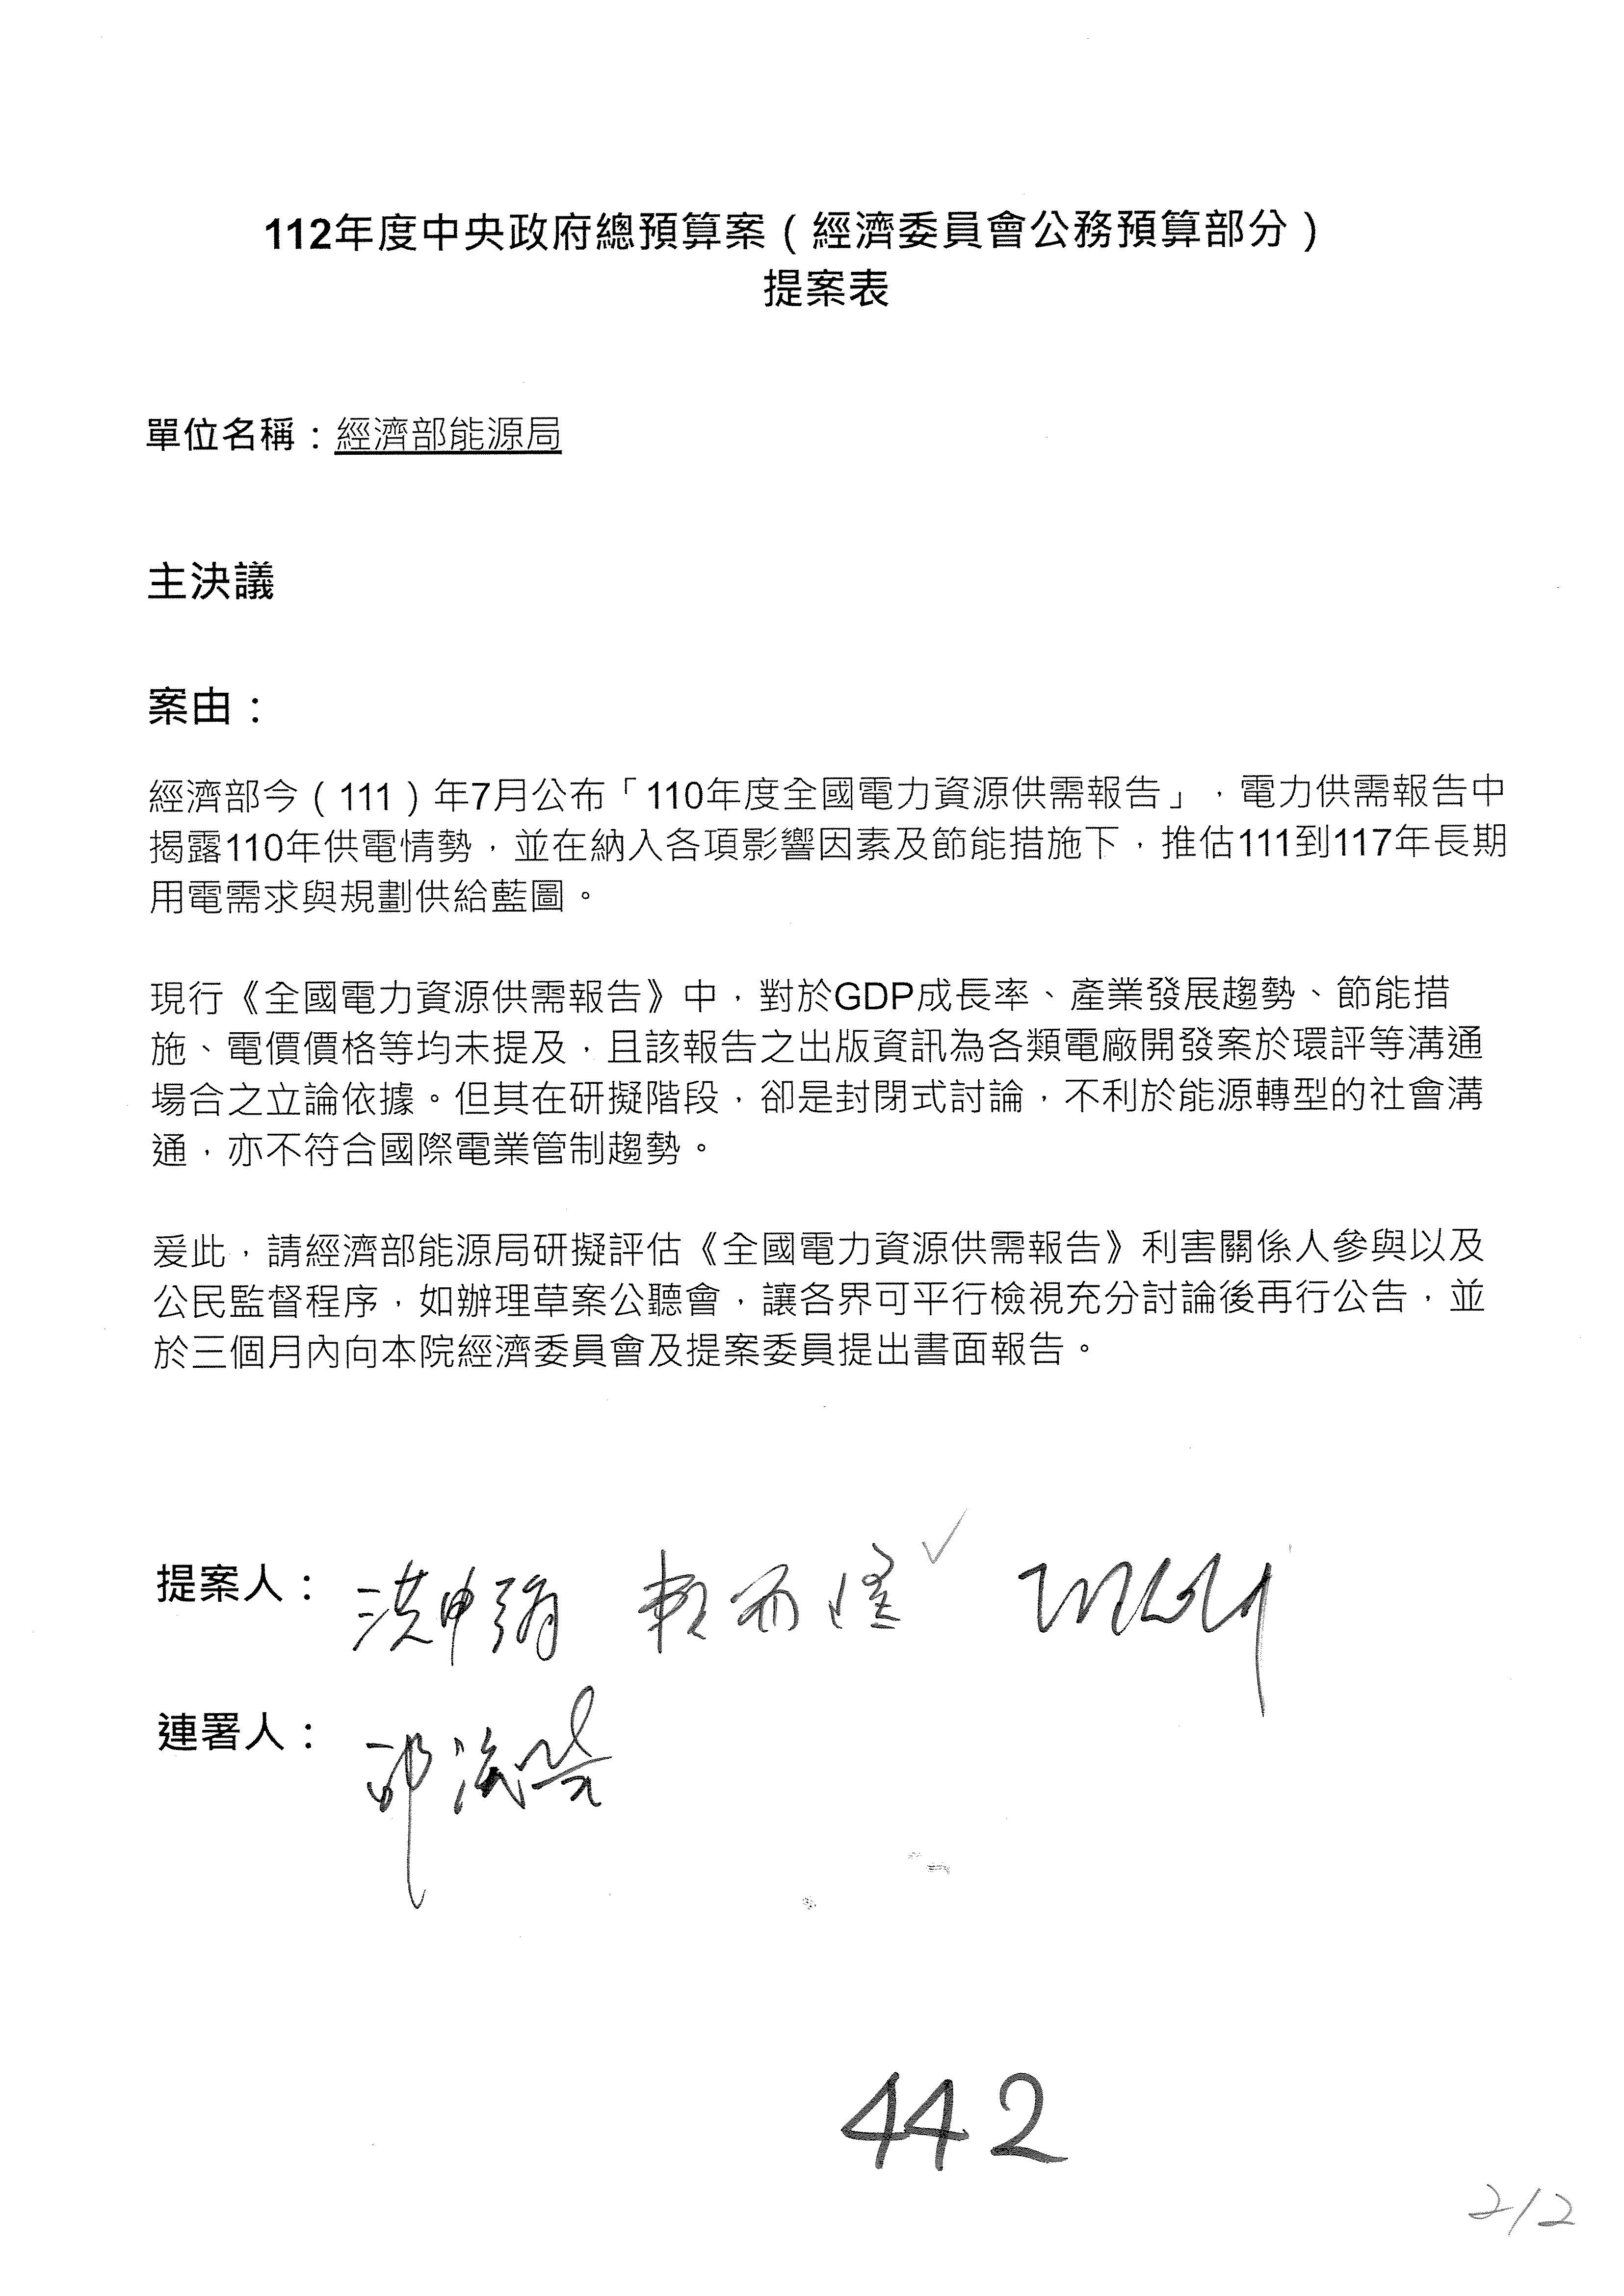 112年度中央政府總預算案（經濟委員會公務預算部分）
提案表
單位名稱：經濟部能源局
主決議
案由：
經濟部今（111）年7月公布「110年度全國電力資源供需報告」，電力供需報告中
揭露110年供電情勢，並在納入各項影響因素及節能措施下，推估111到117年長期
用電需求與規劃供給藍圖。
現行《全國電力資源供需報告》中，對於GDP成長率、產業發展趨勢、節能措
施、電價價格等均未提及，且該報告之出版資訊為各類電廠開發案於環評等溝通
場合之立論依據。但其在研擬階段，卻是封閉式討論，不利於能源轉型的社會溝
通，亦不符合國際電業管制趨勢。
爰此，請經濟部能源局研擬評估《全國電力資源供需報告》利害關係人參與以及
公民監督程序，如辦理草案公聽會，讓各界可平行檢視充分討論後再行公告，並
於三個月內向本院經濟委員會及提案委員提出書面報告。
提案人：洪申翰
連署人：
442
2/2